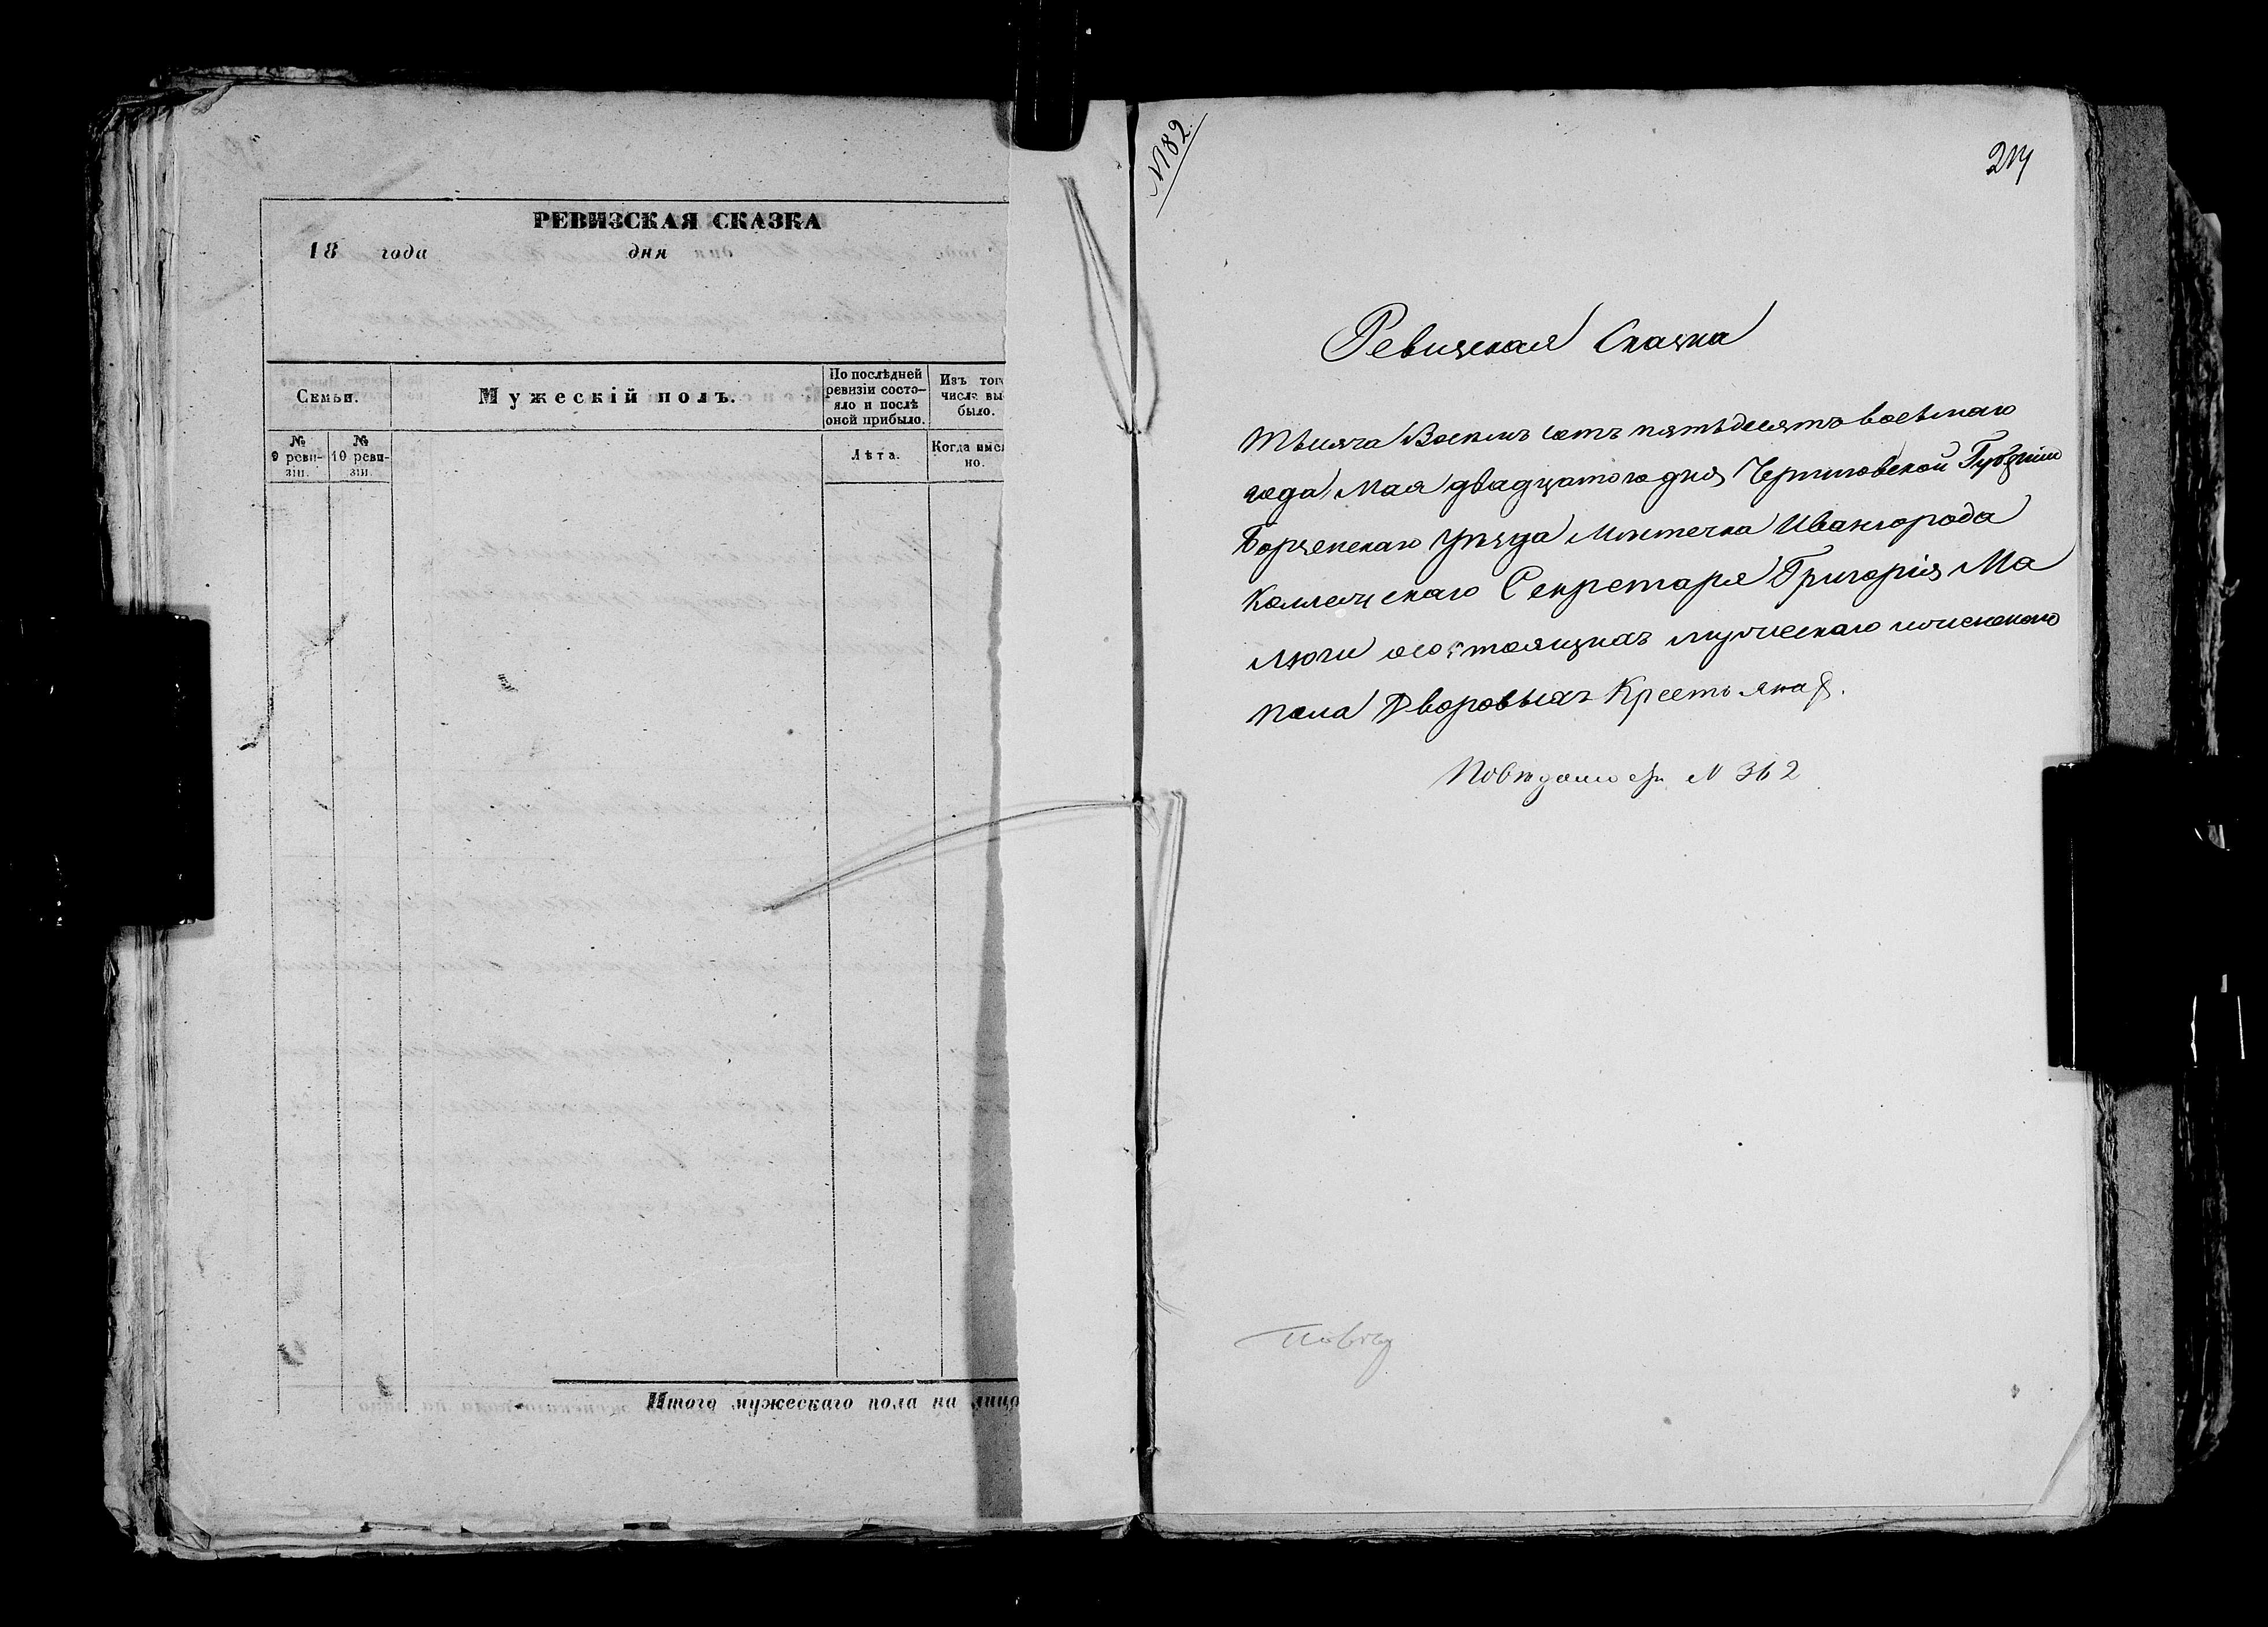 РЕВИЗСКАЯ СКАЗКА
18 года дня
Семьи.
Мужескій полъ.
По послѣдней ревизіи состо-
яло и послѣ
оной прибыло.
Изъ того
числа вы-
было.
№
9 реви-
зіи.
№
10 реви-
зіи.
Лѣта.
Когда имен
но.
Итого мужескаго пола на лицо
№ 82.
Ревизская Сказка
Тысяча Восемь сотъ пятьдесятъ восьмаго
года, Мая двадцатого дня, Черниговской Губерніи
Борзенскаго уѣзда Мѣстечка Ивангорода
Коллежскаго Секретаря Григорія Ма
люги о состоящихъ мужескаго и женскаго
пола Дворовыхъ Крестьянах.
№ 362